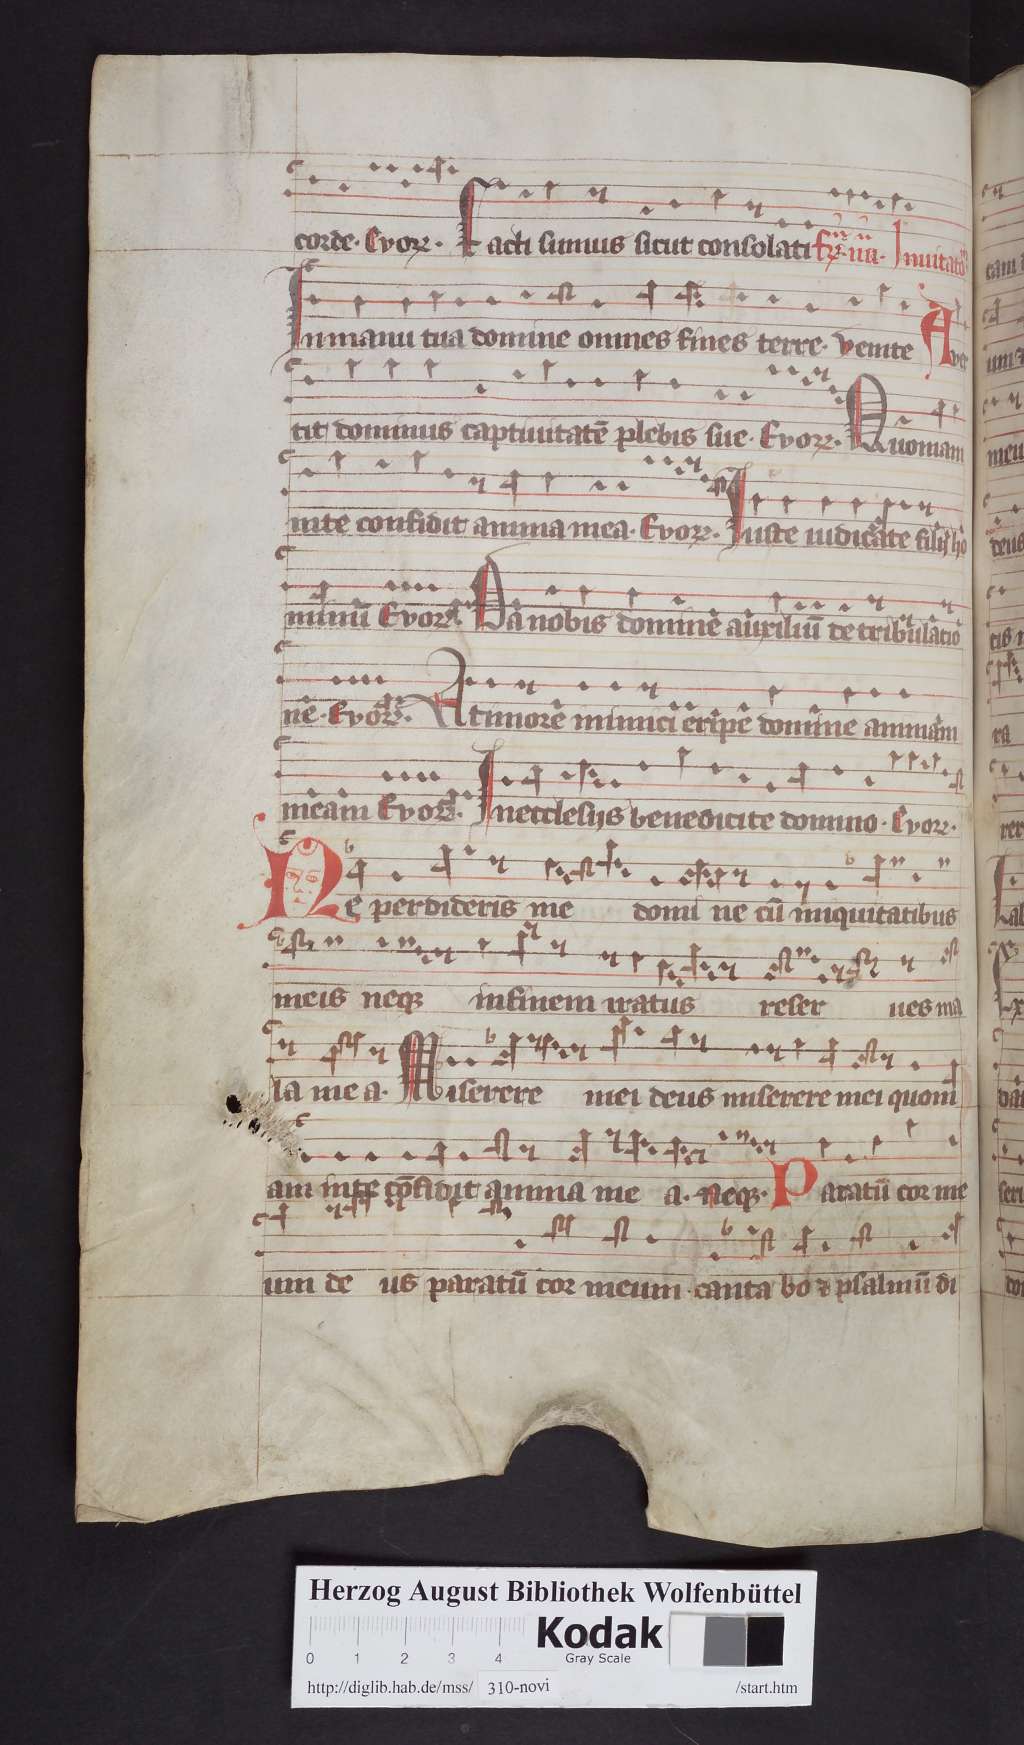 corde. Evorʒ. Facti sumus sicut consolati fer. iiii. Invitator
In manu tua domine omnes fines terre. Venite Aver
tit dominus captivitatē plebis sue. Evorʒ. Quoniam
in te confidit anima mea. Evorʒ. Iuste iudicate filij ho
minū Evorʒ. Da nobis domine auxiliū de tribulatio
ne. Evorʒ. A timore inimici eripe domine animam
meam Evorʒ. In ecclesijs benedicite domino. Evorʒ.
Ne perdideris me domi ne cū iniquitatibus
meis neqʒ in finem iratus reser ues ma
la me a. Miserere mei deus miserere mei quoni
am in te cōfidit anima me a. Neqʒ. Paratū cor me
um de us paratū cor meum canta bo ⁊ psalmū di
Herzog August Bibliothek Wolfenbüttel
Kodak
Gray Scale
0 1 2 3 4
http://diglib.hab.de/mss/ 310-novi /start.htm